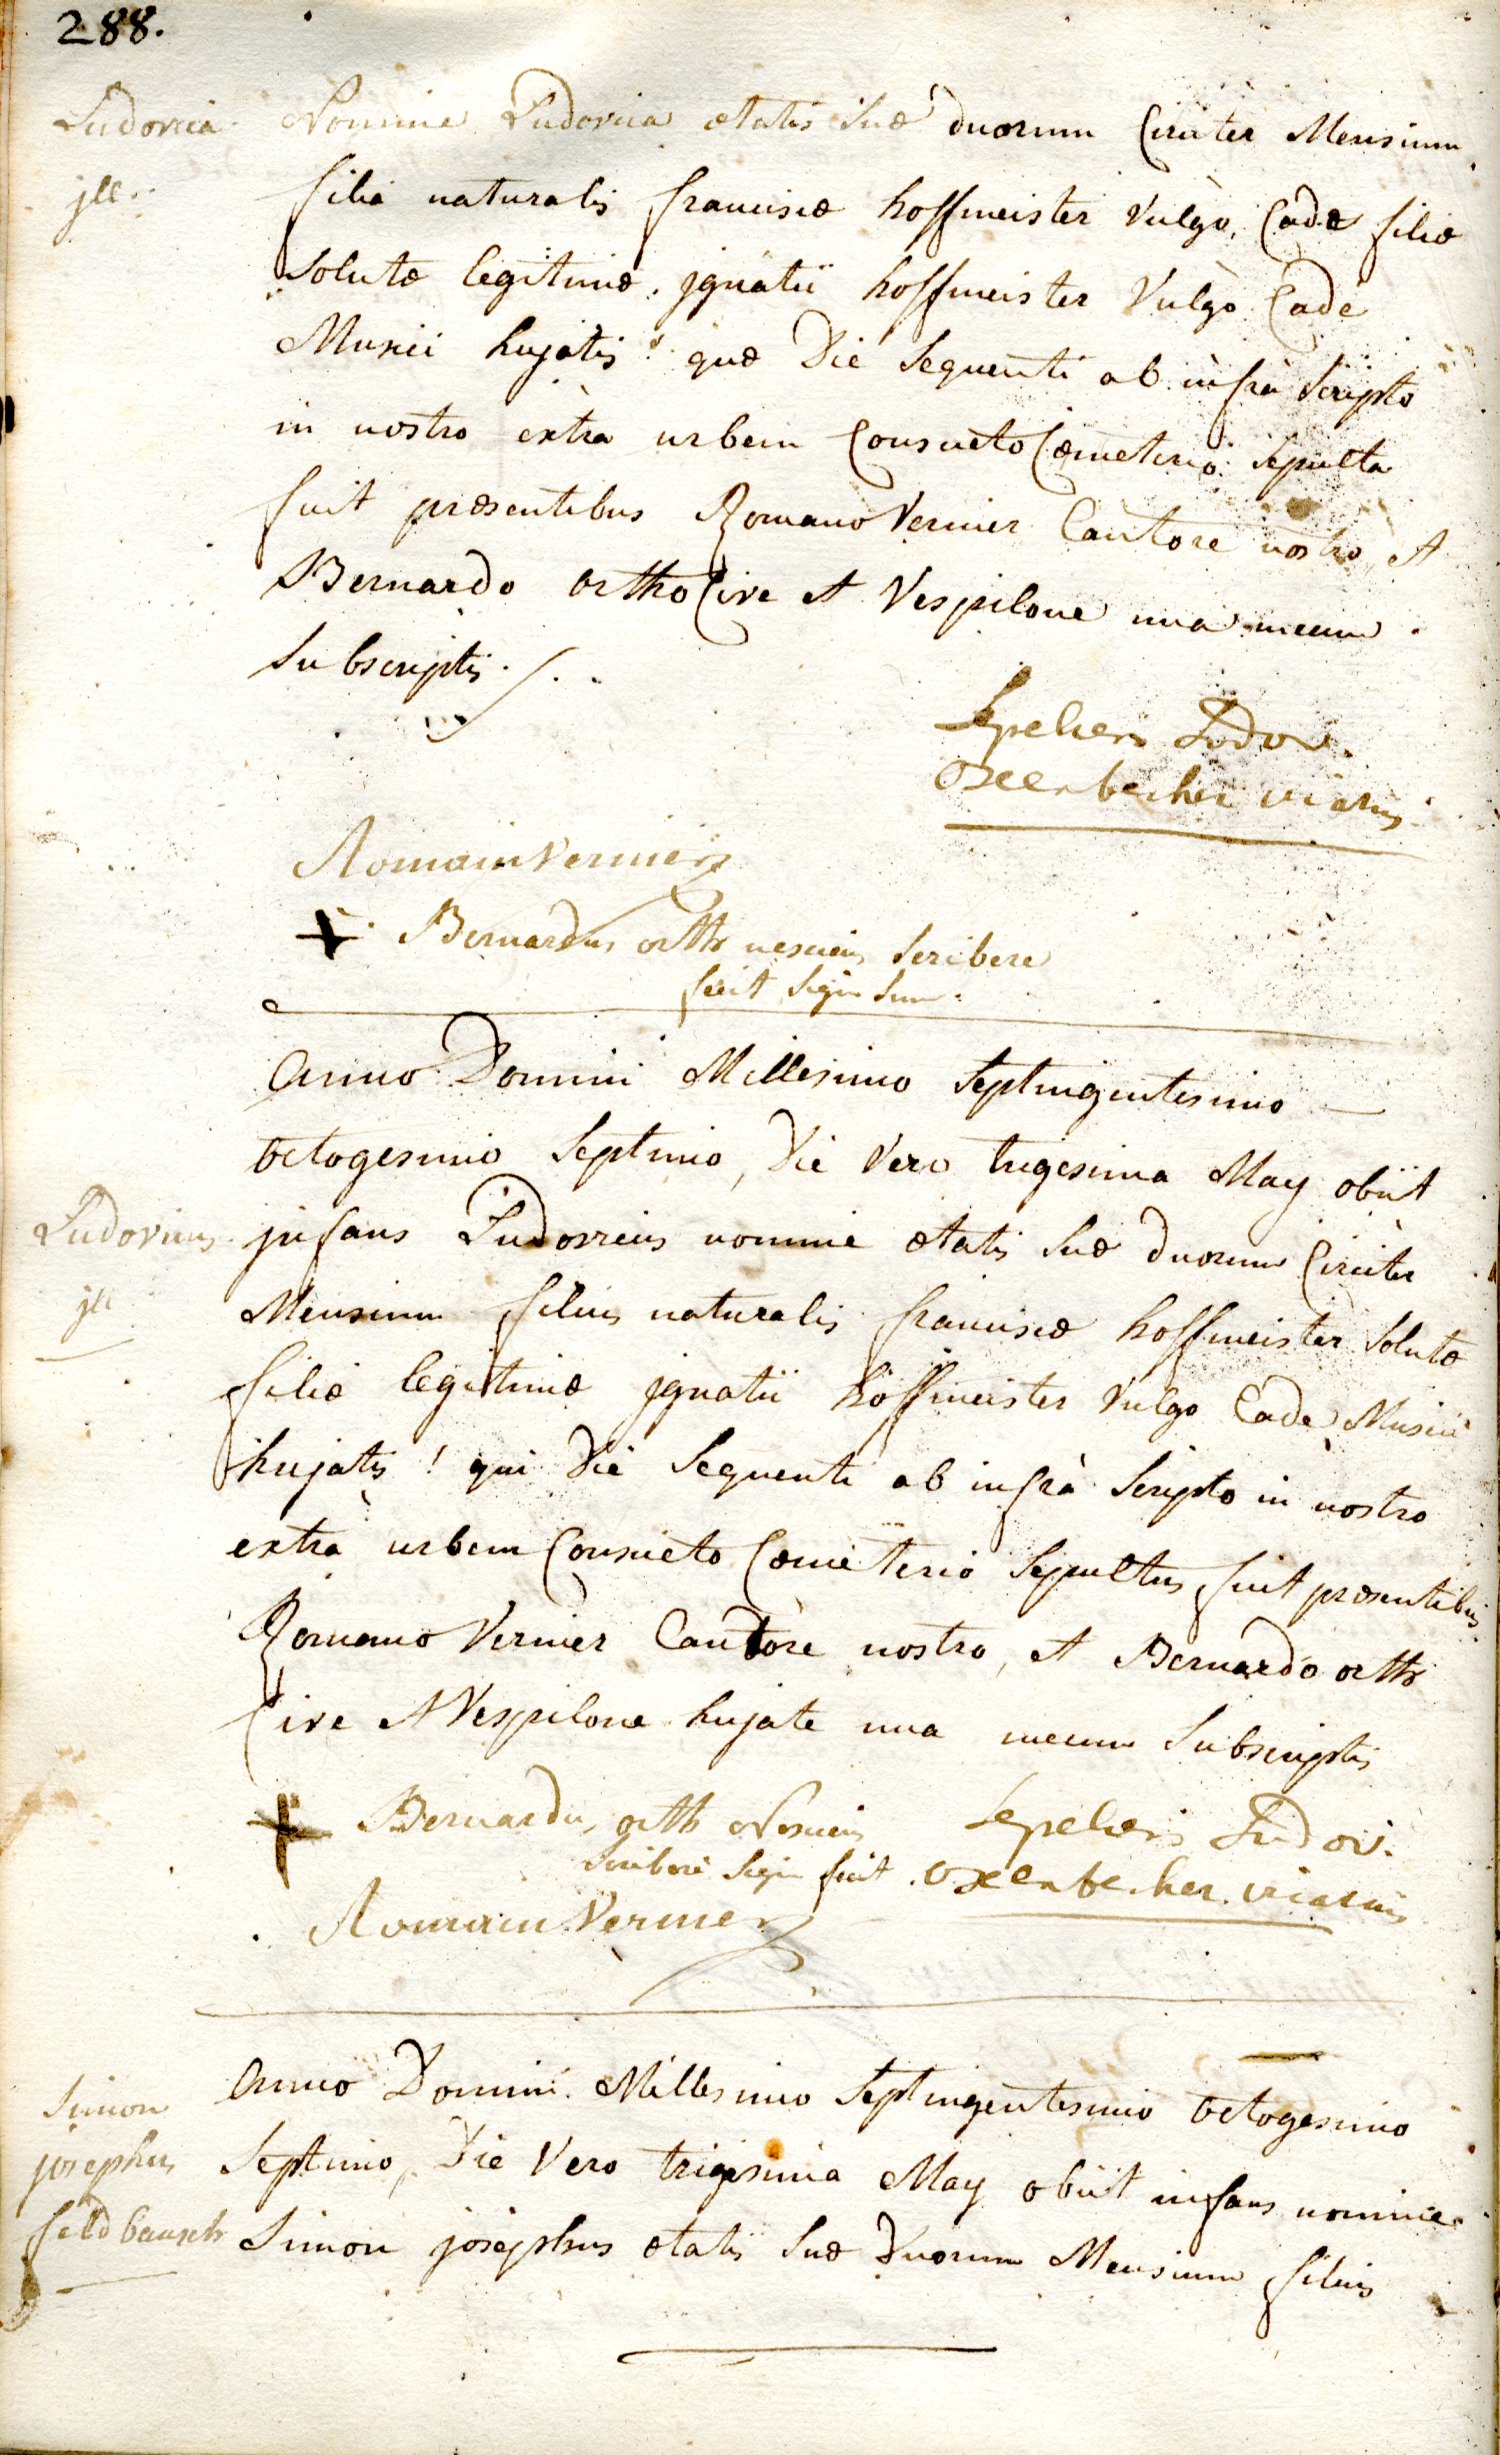 288.
Ludovica
jll.
Nomine Ludovica ætatis suæ duorum Circiter Mensium
filia naturalis franciscæ hoffmeister vulgò Cadæ filiæ
solutæ legitimæ jgnatii hoffmeister vulgò Cadè
Musici hujatis! quæ Die sequenti ab infrà scripto
in nostro extra urbem Consueto Cœmeterio sepulta
fuit præsentibus Romano Vernier Cantore nostro, et
Bernardo ortho Cive et Vespilone una mecum
subscriptis./.
Romain Vernier
+ Bernardus orth nesciens scribere
fecit sign sum.
anno Domini Millesimo septingentesimo
octogesimo septimo, Die Vero trigesima May obiit
Ludovicus
jll
jnfans Ludovicus nomine ætatis suæ duorum Circiter
Mensium filius naturalis franciscæ hoffmeister solutæ
filiæ legitimæ jgnatii hoffmeister vulgo Cade Musici
hujatis! qui Die sequenti ab infrà scripto in nostro
extrà urbem Consueto Cœmeterio sepultus fuit præsentibus
Romano Vernier Cantore nostro, et Bernardo orth
Cive et Vespilone hujate una mecum subscriptis
+ Bernardus orth Nesciens
scribere sign fecit.
Romain Vernier
Simon
josephus
feldbausch
anno Domini Millesimo septingentesimo octogesimo
septimo, Die Vero trigesima May obiit infans nomine
Simon josephus ætatis suæ Duorum Mensium filius